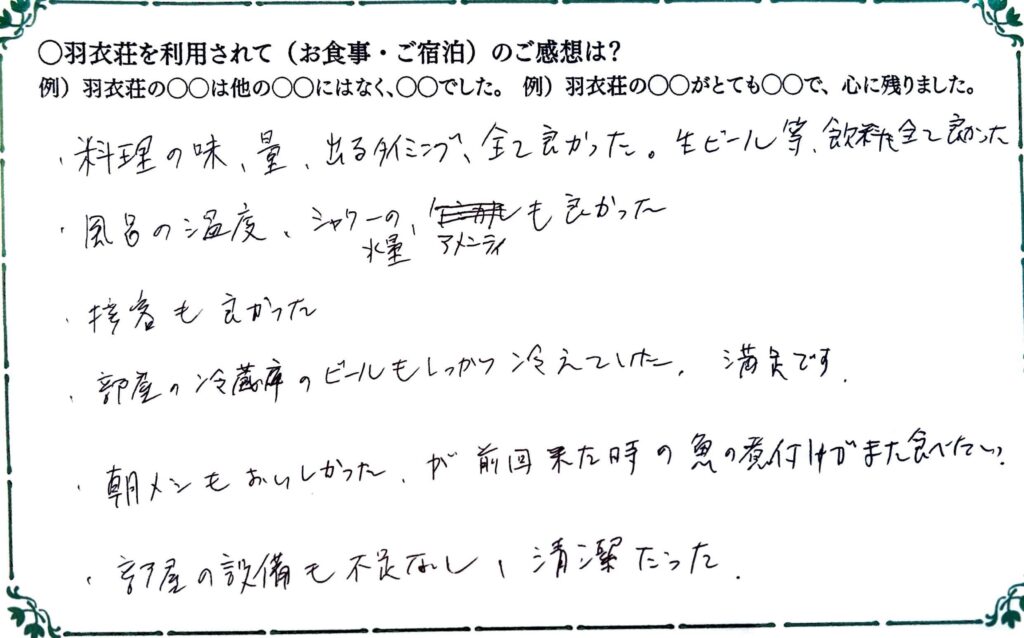 〇羽衣荘を利用されて（お食事・ご宿泊）のご感想は？
例）羽衣荘の〇〇は他の〇〇にはなく、〇〇でした。 例）羽衣荘の〇〇がとても〇〇で、心に残りました。
・料理の味、量、出るタイミング、全て良かった。生ビール等、飲料も全て良かった
・風呂の温度、シャワーの水量、アメンティも良かった
・接客も良かった
・部屋の冷蔵庫のビールもしっかり冷えていた。満足です.
・朝メシもおいしかった、が前回来た時の魚の煮付けがまた食べたい.
・部屋の設備も不足なし、清潔だった.